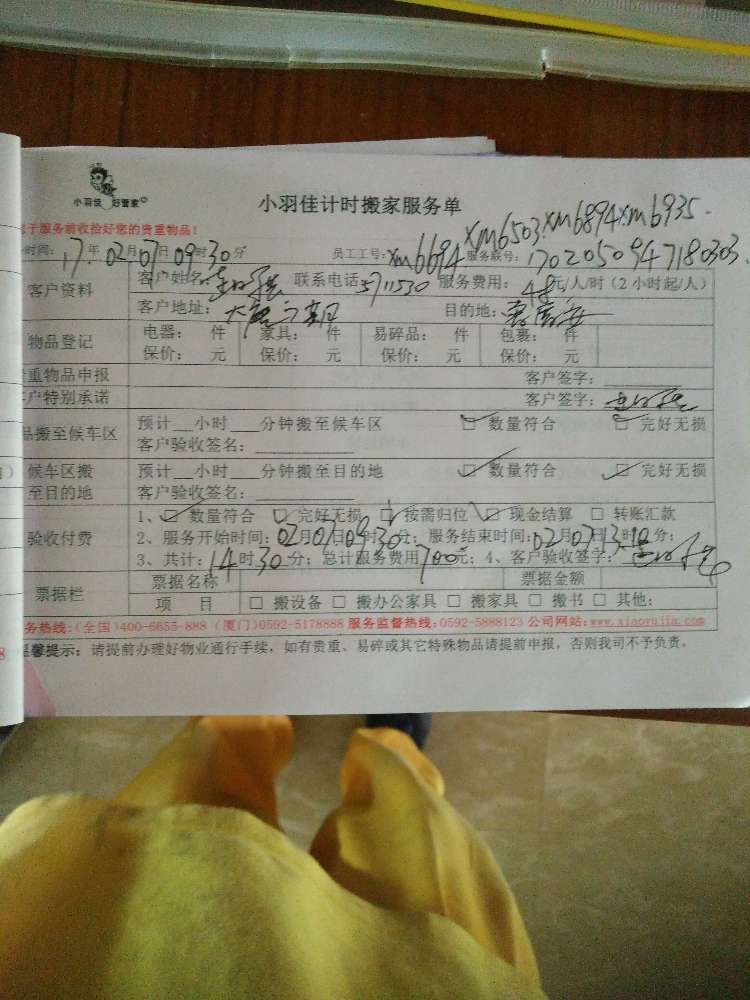 小羽佳 好管家
小羽佳计时搬家服务单
于服务前收拾好您的贵重物品！
xm6503.xm6894xm6935.
时间：17年02月07日09时30分 员工工号：xm6694 服务联号：170205094718 0303.
客户资料 客户姓名： 联系电话5711530 服务费用：48元/人/时（2小时起/人）
客户地址： 目的地：
物品登记 电器： 件 家具： 件 易碎品： 件 包裹： 件
保价： 元 保价： 元 保价： 元 保价： 元
重物品申报 客户签字：
户特别承诺 客户签字：
品搬至候车区 预计__小时__分钟搬至候车区 ☑ 数量符合 ☑ 完好无损
客户验收签名：
候车区搬 预计__小时__分钟搬至目的地 ☑ 数量符合 ☑ 完好无损
至目的地 客户验收签名：
验收付费 1、☑ 数量符合 ☑ 完好无损 ☑ 按需归位 ☑ 现金结算 □ 转账汇款
2、服务开始时间：02月07日09时30分；服务结束时间：02月07日13时18分；
3、共计：14时30分；总计服务费用700元；4、客户验收签字：
票据栏 票据名称 票据金额
项 目 □ 搬设备 □ 搬办公家具 □ 搬家具 □ 搬书 □ 其他：
务热线：（全国）400-6655-888（厦门）0592-5178888 服务监督热线：0592-5888123 公司网站：www.xiaoyujia.com
温馨提示：请提前办理好物业通行手续，如有贵重、易碎或其它特殊物品请提前申报，否则我司不予负责。